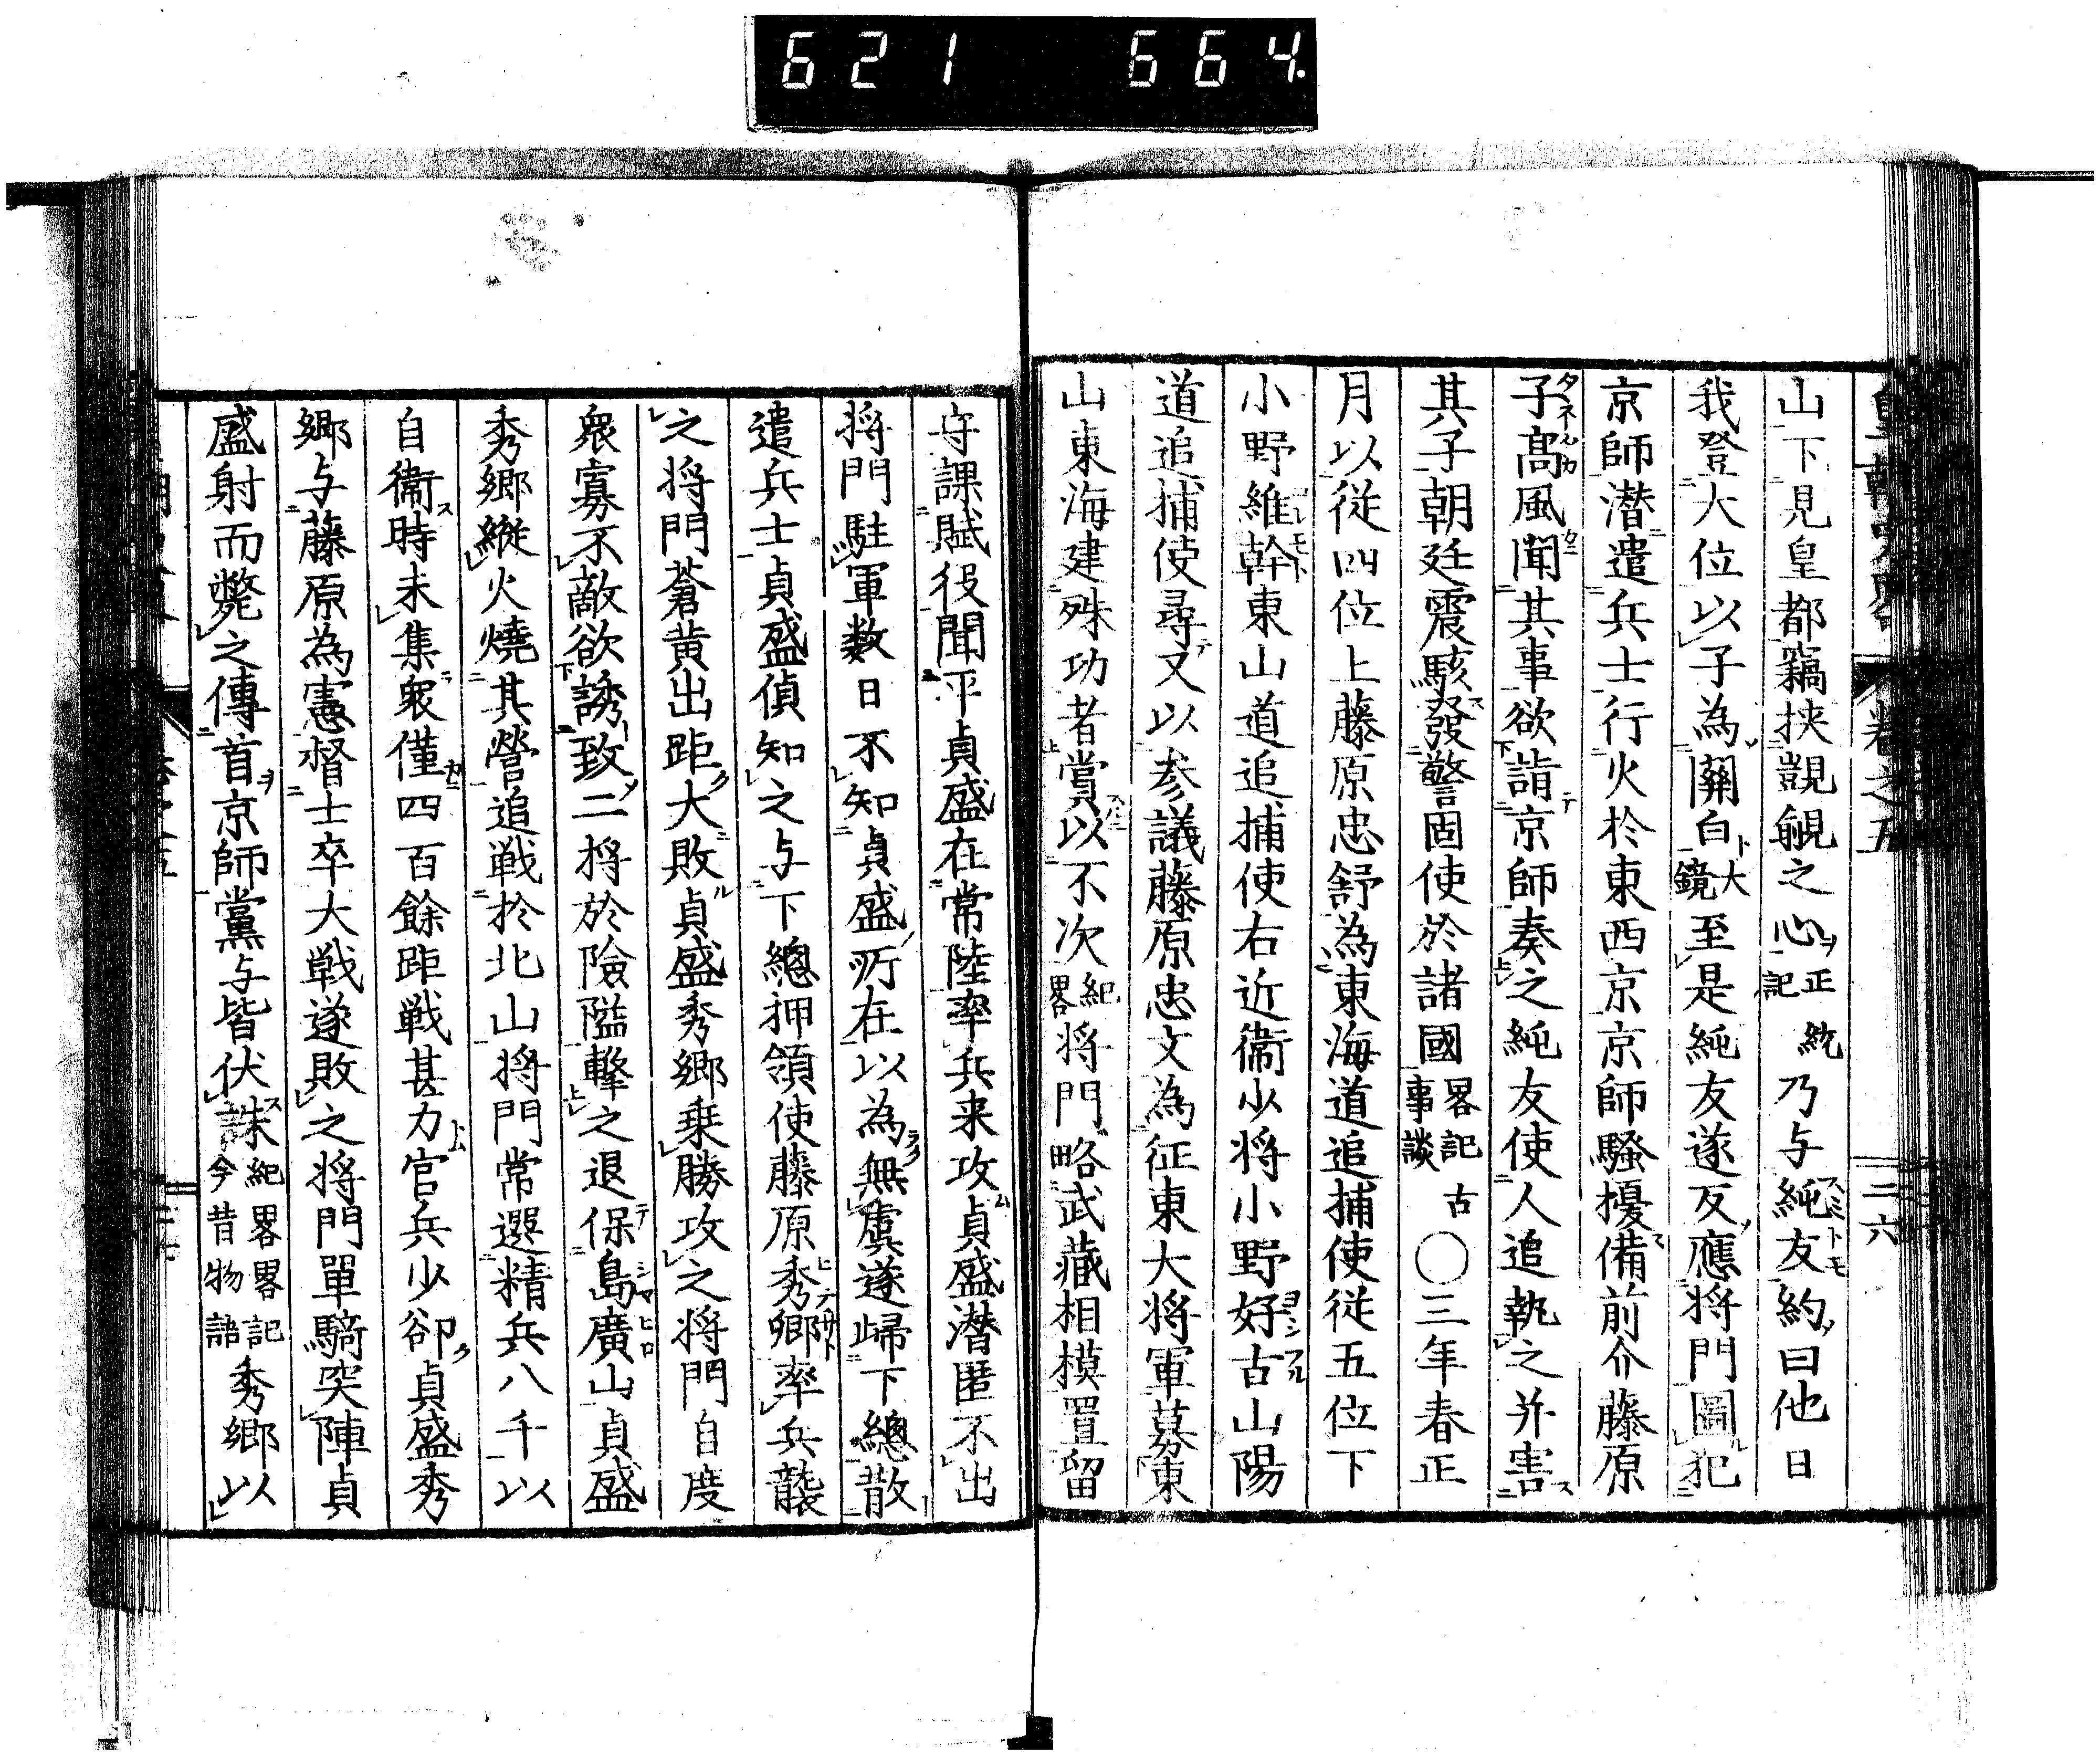 621 664.
卷之五 二六
山下見皇都竊挾覬覦之心正統記乃与純友約曰他日
我登大位以子為關白大鏡至是純友遂反應将門圖犯
京師潜遣兵士行火於東西京京師騷擾備前介藤原
子髙風聞其事欲詣京師奏之純友使人追執之并害
其子朝廷震駭發警固使於諸國畧記古事談〇三年春正
月以従四位上藤原忠舒為東海道追捕使従五位下
小野維幹東山道追捕使右近衞少将小野好古山陽
道追捕使尋又以参議藤原忠文為征東大将軍募東
山東海建殊功者賞以不次紀畧将門略武藏相模置留
守課賦役聞平貞盛在常陸率兵来攻貞盛潜匿不出
将門駐軍数日不知貞盛所在以為無虞遂歸下總散
遣兵士貞盛偵知之与下總押領使藤原秀郷率兵襲
之将門蒼黄出距大敗貞盛秀郷乗勝攻之将門自度
衆寡不敵欲誘致二将於險隘擊之退保島廣山貞盛
秀郷縱火燒其營追戦於北山将門常選精兵八千以
自衞時未集衆僅四百餘距戦甚力官兵少卻貞盛秀
郷与藤原為憲督士卒大戦遂敗之将門單騎突陣貞
盛射而斃之傳首京師黨与皆伏誅紀畧畧記今昔物語秀郷以